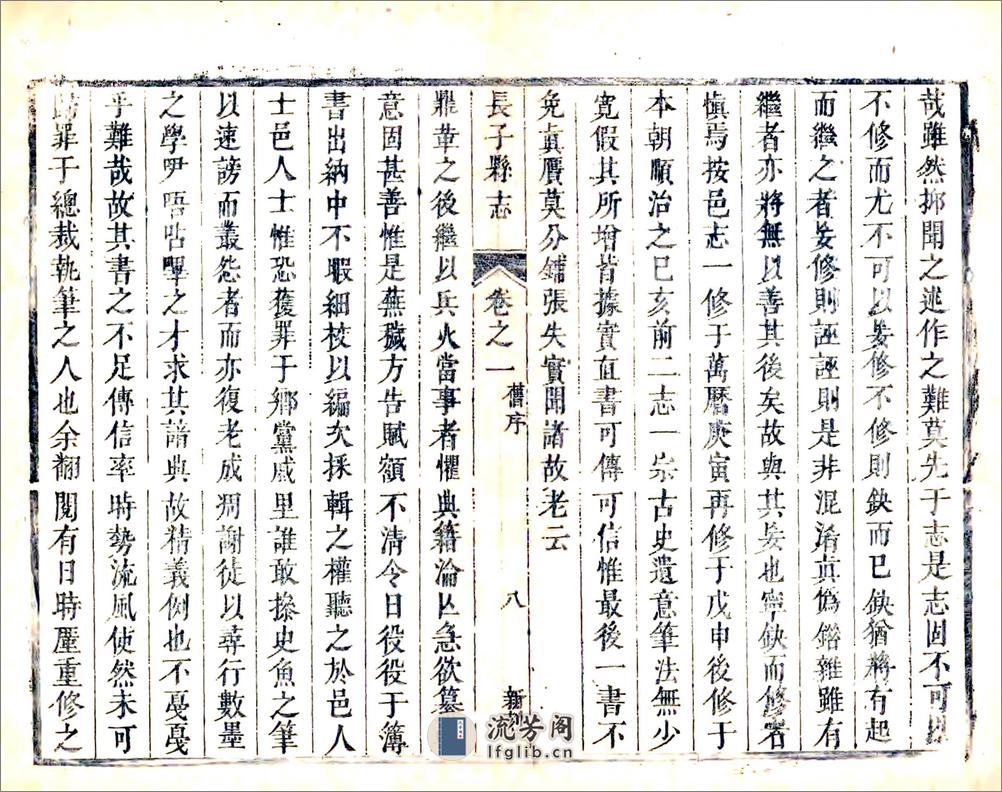 哉雖然抑聞之述作之難莫先于志是志固不可以
不修而尤不可以妄修不修則缺而已缺猶將有起
而繼之者妄修則誣誣則是非混淆眞偽錯雜雖有
繼者亦將無以善其後矣故與其妄也寧缺而修者
愼焉按邑志一修于萬曆庚寅再修于戊申後修于
本朝順治之己亥前二志一宗古史遺意筆法無少
寬假其所增皆據實直書可傳可信惟最後一書不
免眞贋莫分鋪張失實聞諸故老云
長子縣志 卷之一 舊序 八 新刻
鼎革之後繼以兵火當事者懼典籍淪亾急欲纂
意固甚善惟是蕪穢方告賦額不清令日役役于簿
書出納中不暇細校以編次採輯之權聽之於邑人
士邑人士惟恐獲罪于鄉黨戚里誰敢操史魚之筆
以速謗而叢怨者而亦復老成凋謝徒以尋行數墨
之學呻唔呫嗶之才求其諳典故精義例也不戞戞
乎難哉故其書之不足傳信率時勢流風使然未可
歸罪于總裁執筆之人也余翻閱有日時厪重修之
流芳阁
lfglib.cn